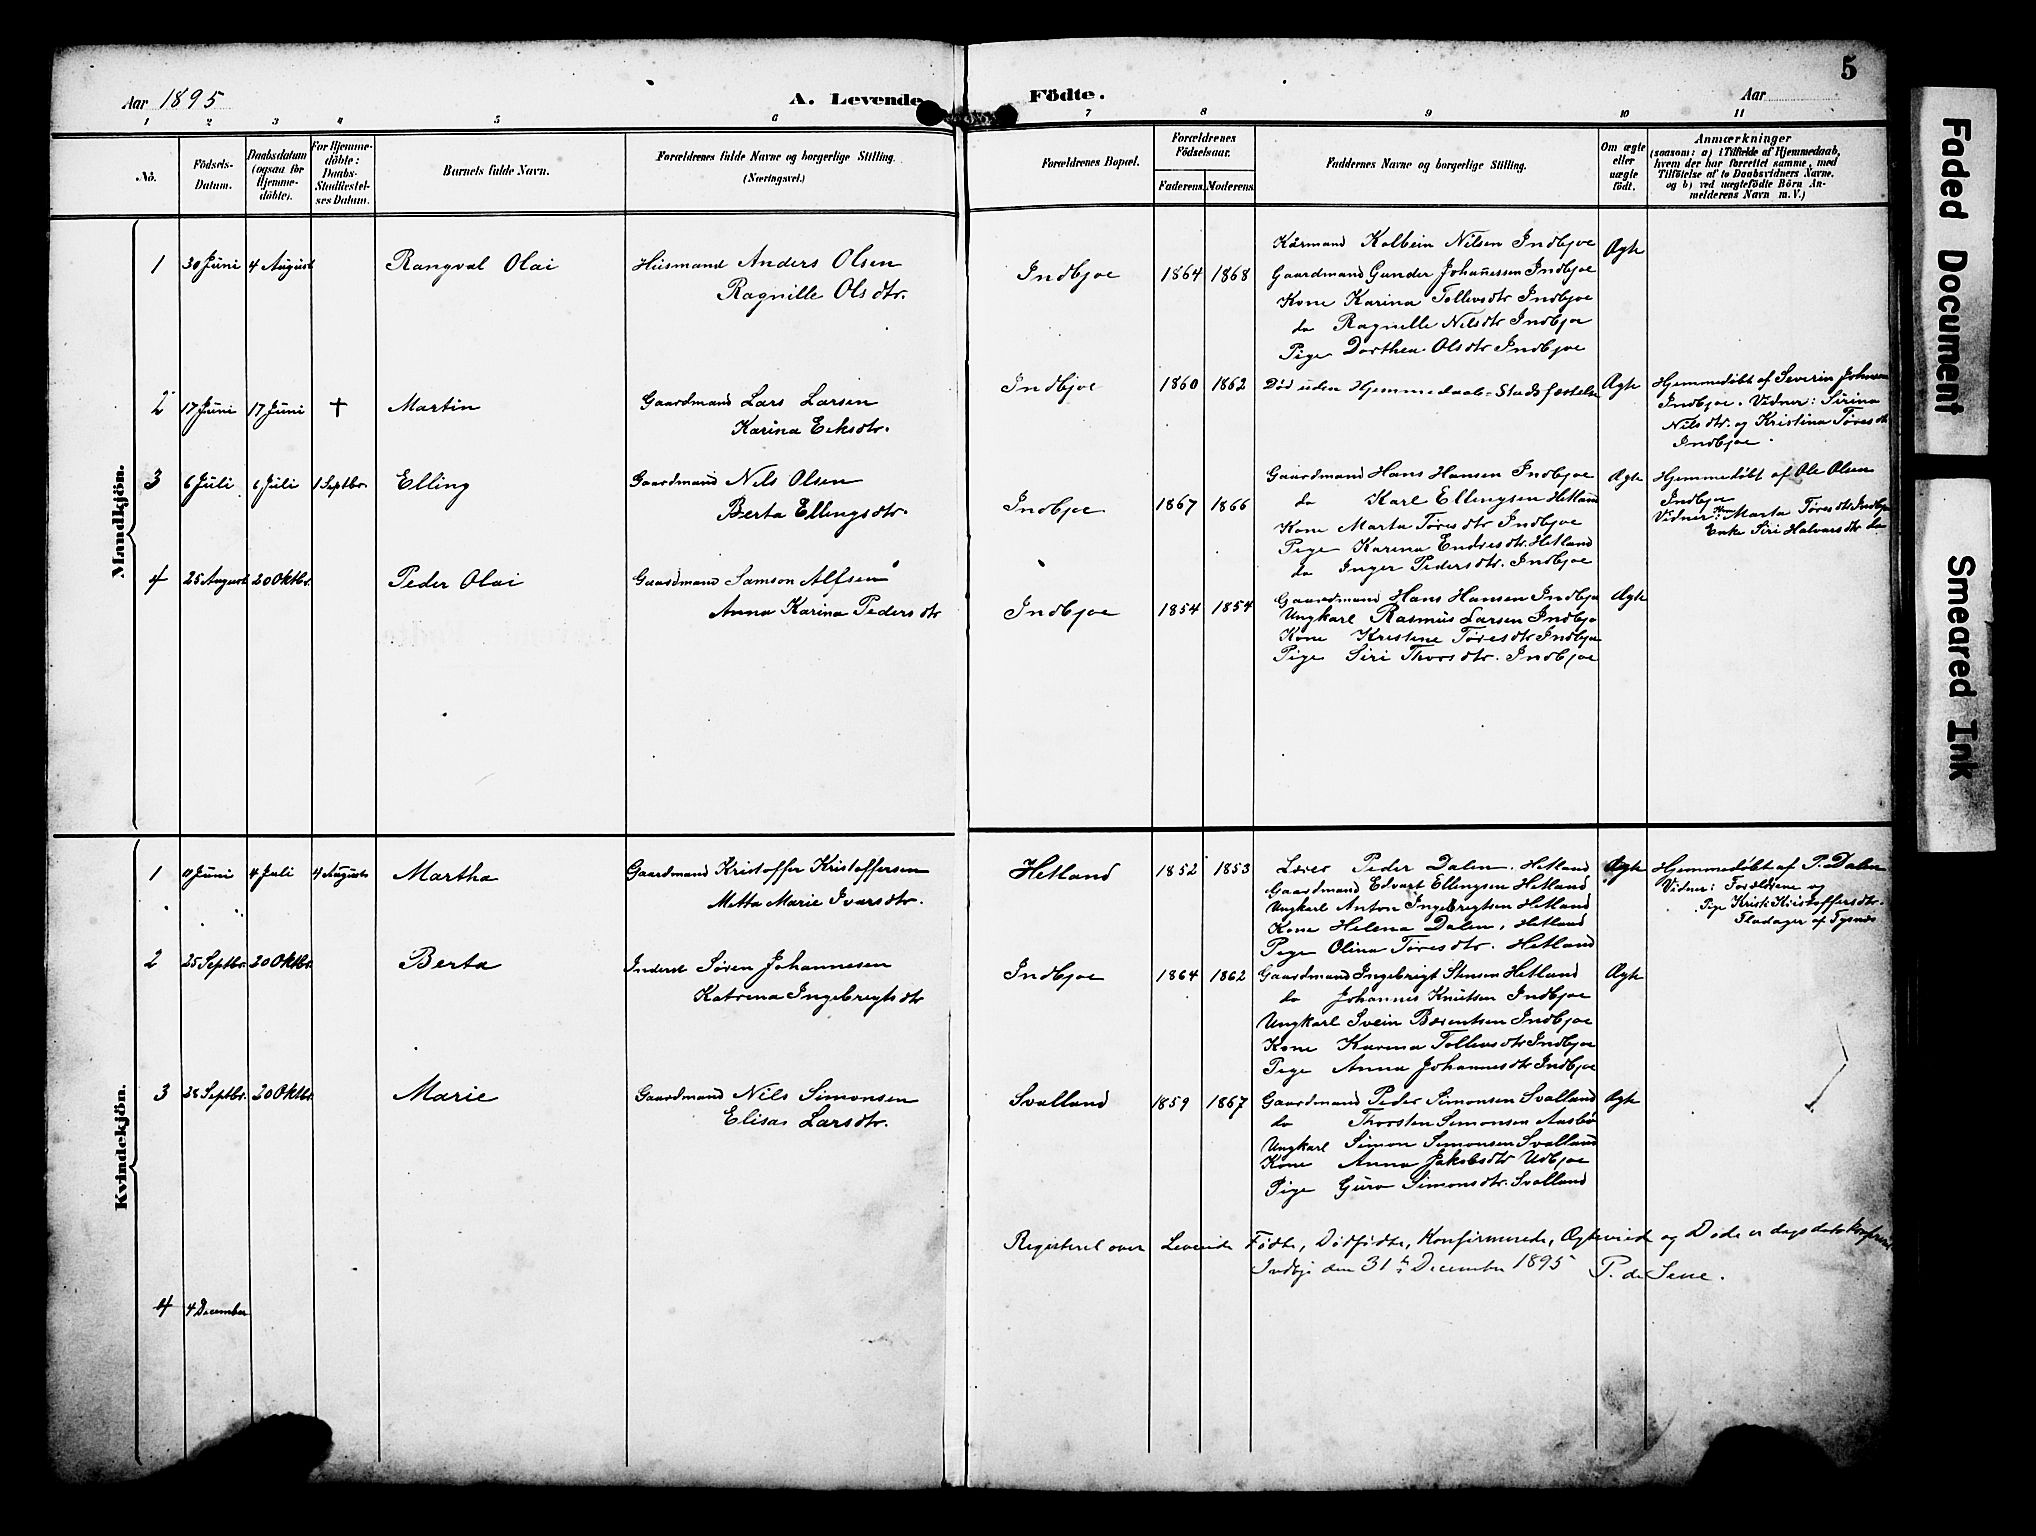 5
Aar 1895
A. Levende
Födte.
Aar
1 2 3 4 5 6 7 8 9 10 11
No.
Födsels-
Datum.
Daabsdatum
(ogsaa for
Hjemme-
döbte).
For Hjemme-
döbte:
Daabs-
Stadfæstel-
ses Datum.
Barnets fulde Navn.
Forældrenes fulde Navne og borgerlige Stilling.
(Næringsvei.)
Forældrenes Bopæl.
Forældrenes
Födselsaar.
Faderens. Moderens.
Faddernes Navne og borgerlige Stilling.
Om ægte
eller
uægte
födt.
Anmærkninger
(saasom: a) i Tilfælde af Hjemmedaab,
hvem der har forrettet samme, med
Tilföielse af to Daabsvidners Navne.
og b) ved uægtefödte Börn An-
melderens Navn m. V.)
Mandkjön.
1 30 Juni 4 August Rangval Olai
Husmand Anders Olsen
Ragnille Olsdtr.
Indbjoe 1864 1868
Kårmand Kolbein Nilsen Indbjoe
Gaardmand Gunder Johanessen Indbjoe
Kone Karina Tollevsdtr Indbjoe
do Ragnille Nilsdtr Indbjoe
Pige Dorthea Olsdtr Indbjoe
Ægte
2 17 Juni 17 Juni † Martin
Gaardmand Lars Larsen
Karina Eriksdtr.
Indbjoe 1860 1862
Død uden Hjemmedaabs-Stadsfæstelse
Ægte
Hjemmedøbt af Severin Johnsen
Indbjoe. Vidner: Sirina
Nilsdtr. og Kristina Tøresdtr
Indbjoe.
3 6 Juli 6 Juli 1 Septbr. Elling
Gaardmand Nils Olsen
Berta Ellingsdtr.
Indbjoe 1867 1866
Gaardmand Hans Hansen Indbjoe
do Karl Ellingsen Hetland
Kone Marta Tøresdtr Indbjoe
Pige Karina Endresdtr. Hetland
do Inger Pedersdtr. Indbjoe
Ægte
Hjemmedøbt af Ole Olsen
Indbjoe
Vidner: Kone Marta Tøresdtr Indbjoe
Enke Siri Halvarsdtr do
4 25 August 20 Oktbr. Peder Olai
Gaardmand Samson Alfsen
Anna Karina Pedersdtr
Indbjoe 1854 1854
Gaardmand Hans Hansen Indbjo
Ungkarl Rasmus Larsen Indbjo
Kone Kristine Tøresdtr Indbjoe
Pige Siri Thorsdtr. Indbjoe
Ægte
Kvindekjön.
1 Juni 4 Juli 4 August Martha
Gaardmand Kristoffer Kristoffersen
Metta Marie Ivarsdtr.
Hetland 1852 1853
Lærer Peder Dalen. Hetland
Gaardmand Edvart Ellingsen Hetland
Ungkarl Anton Ingebrigtsen Hetland
Kone Helena Dalen, Hetland
Pige Olina Tøresdtr. Hetland
Ægte
Hjemmedøbt af P. Dalen
Vidner: Forældrene og
Pige Kristi Kristoffersdtr.
Fladager af Tysnæs
2 25 Septbr. 20 Oktbr. Berta
Inderst Søren Johannesen
Katrina Ingebregtsdtr
Indbjoe 1864 1862
Gaardmand Ingebrigt Stensen Hetland
do Johannes Knutsen Indbjoe
Ungkarl Svein Bærentsen Indbjoe
Kone Karina Tollevsdtr Indbjoe
Pige Anna Johannesdtr Indbjoe
Ægte
3 28 Septbr. 20 Oktbr. Marie
Gaardmand Nils Simonsen
Elisa Larsdtr.
Svalland 1859 1867
Gaardmand Peder Simonsen Svalland
do Thorsten Simonsen Aasbø
Ungkarl Simon Simonsen Svalland
Kone Anna Jakobsdtr Udbjoe
Pige Guro Simonsdtr. Svalland
Ægte
Registeret over Levende Fødte, Dødfødte, Konfirmerede, Ægteviede og Døde er dags dato
den 31te December 1895 P. de Seue.
4 4 December
Faded Document
Smeared Ink